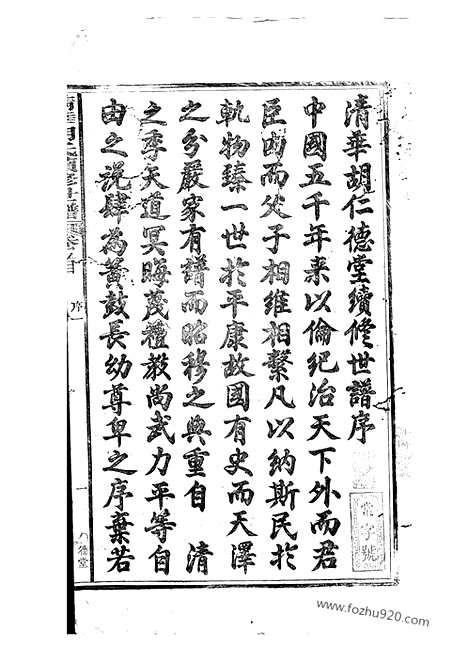 清華胡仁德堂續修世譜序
中國五千年来以倫紀治天下外而君
臣内而父子相維相繫凡以納斯民於
軌物臻一世於平康故國有史而天澤
之分嚴家有譜而昭穆之典重自 清
之季天道冥晦蔑禮教尚武力平等自
由之説肆為簧鼓長幼尊卑之序棄若
序
德堂
字號
www.fozhu920.com